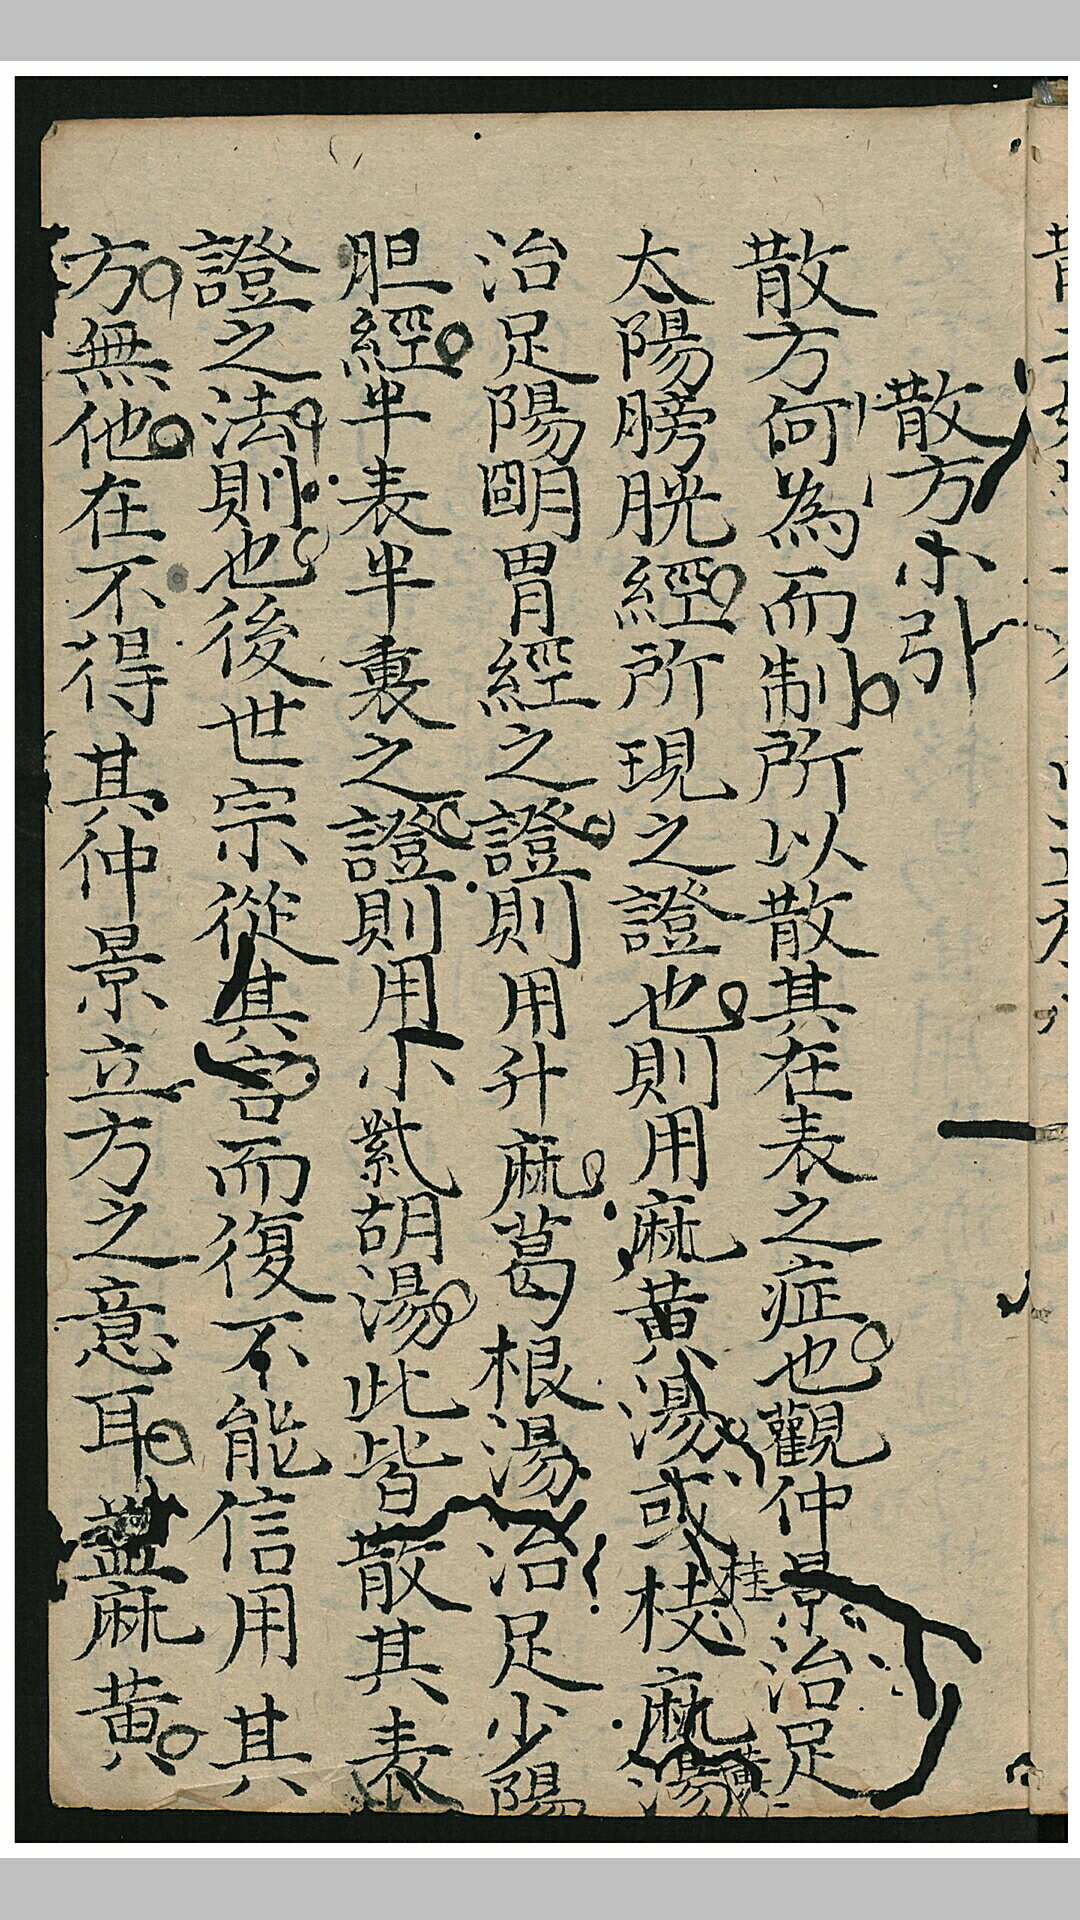 散方小引
散方何為而制所以散其在表之症也觀仲景治足
太陽膀胱經所現之證也則用麻黃湯或桂枝麻黃湯
治足陽明胃經之證則用升麻葛根湯治足少陽
胆經半表半裏之證則用小紫胡湯此皆散其表
證之法則也後世宗從其言而復不能信用其
方無他在不得其仲景立方之意耳蓋麻黃